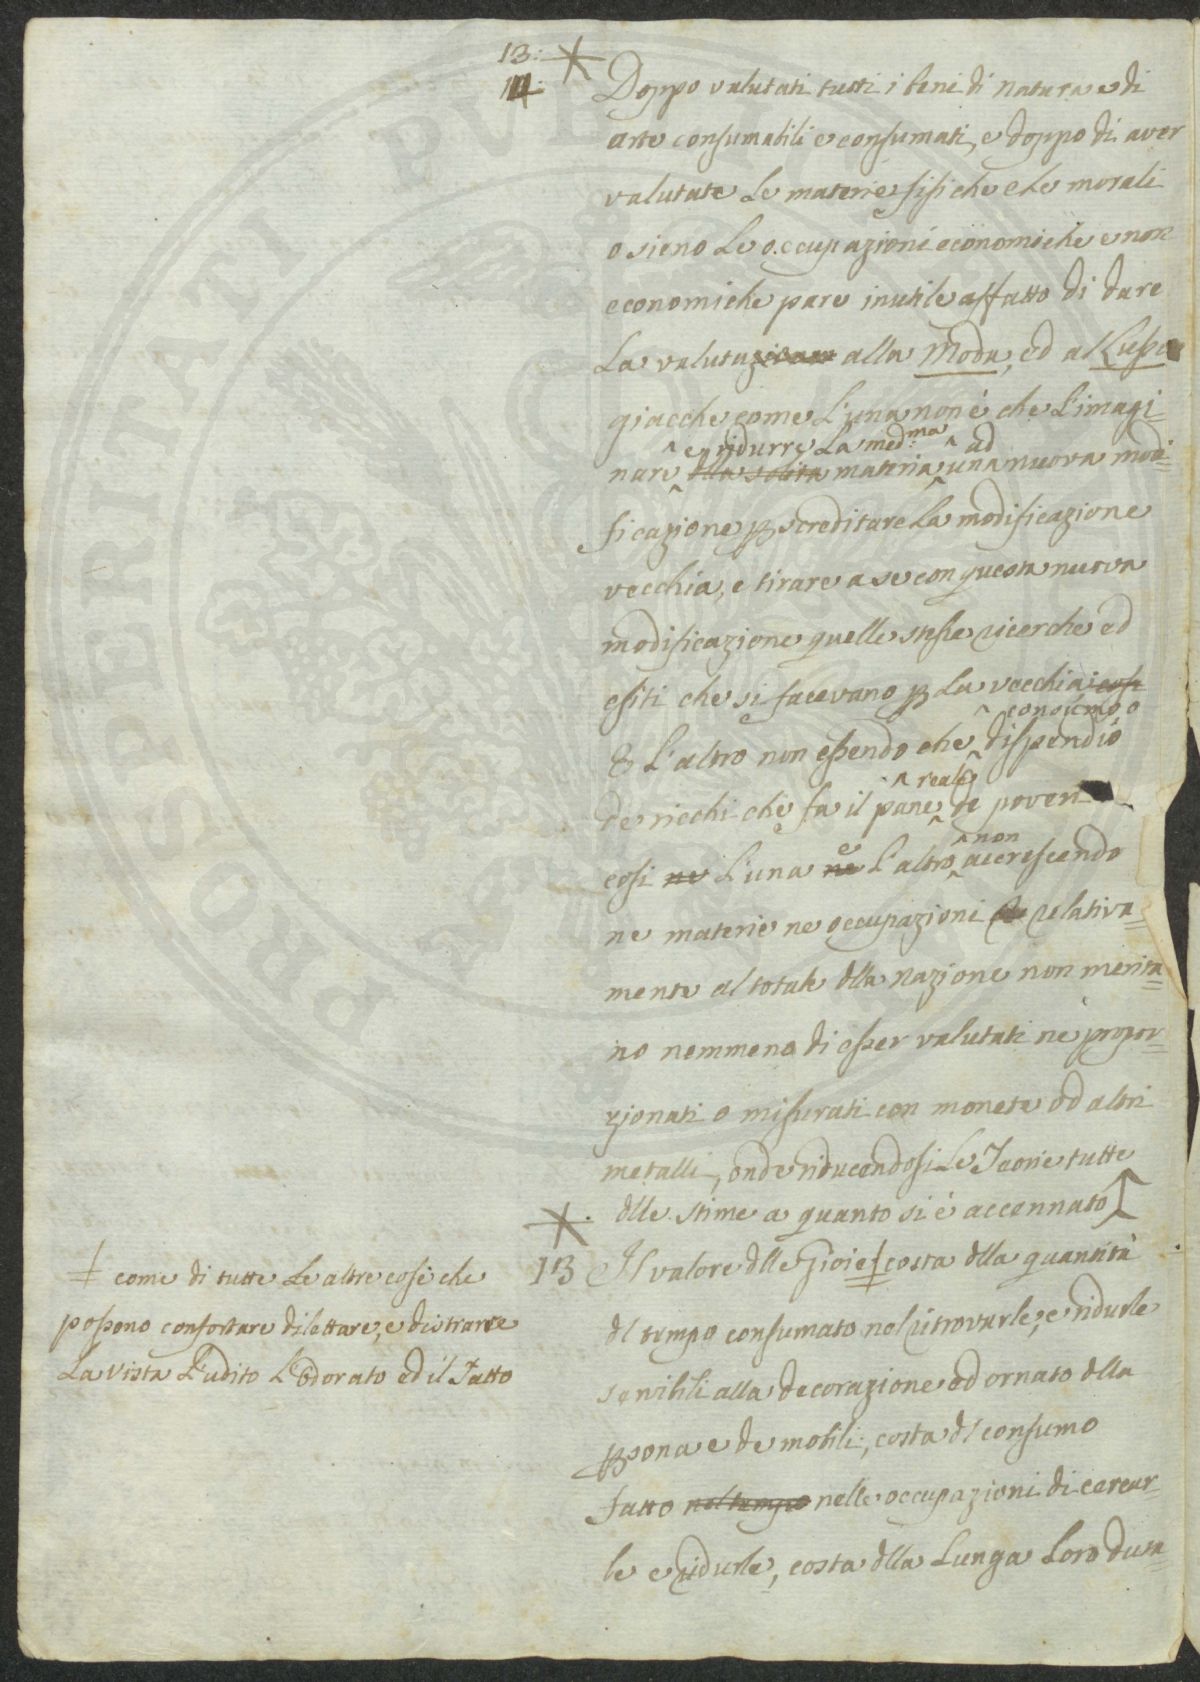 13: *
Doppo valutati tutti i beni di natura e di
arte consumabili e consumati, e doppo di aver
valutate Le materie fisiche e Le morali
o sieno Le occupazioni economiche e non
economiche pare inutile affatto di dare
La valutazione alla Moda, ed al Lusso
giacche come L'una non é che L'imagi-
^ e ridurre La med:ma ^ ad
nare dlla solita materia una nuova modi=
ficazione p screditare La modificazione
vecchia, e tirare a se con questa nuova
modificazione quelle stesse ricerche ed
esiti che si facevano p La vecchia cosi
^ consumo o
E L'altro non essendo che dispendio
^ reale
de ricchi che fa il pane de poveri
e ^ non
cosi ne L'una ne L'altro accrescendo
ne materie ne occupazioni relativa=
mente al totale dlla nazione non merita=
no nemmeno di esser valutati ne propor=
zionati o misurati con monete od altri
metalli, onde riducendosi Le Teorie tutte
* dlle stime a quanto si é accennato
13 Il valore dlle Gioie ‡ costa dlla quantità
dl tempo consumato nel ritrovarle, e ridurle
servibili alla decorazione ed ornato dlla
psona e de mobili, costa dl consumo
fatto nel tempo nelle occupazioni di cercar=
le e ridurle, costa dlla Lunga Loro dura=
‡ come di tutte Le altre cose che
possono confortare dilettare, e distrarre
La vista L'udito L'odorato ed il Tatto
PROSPERITATI PUBLICAE